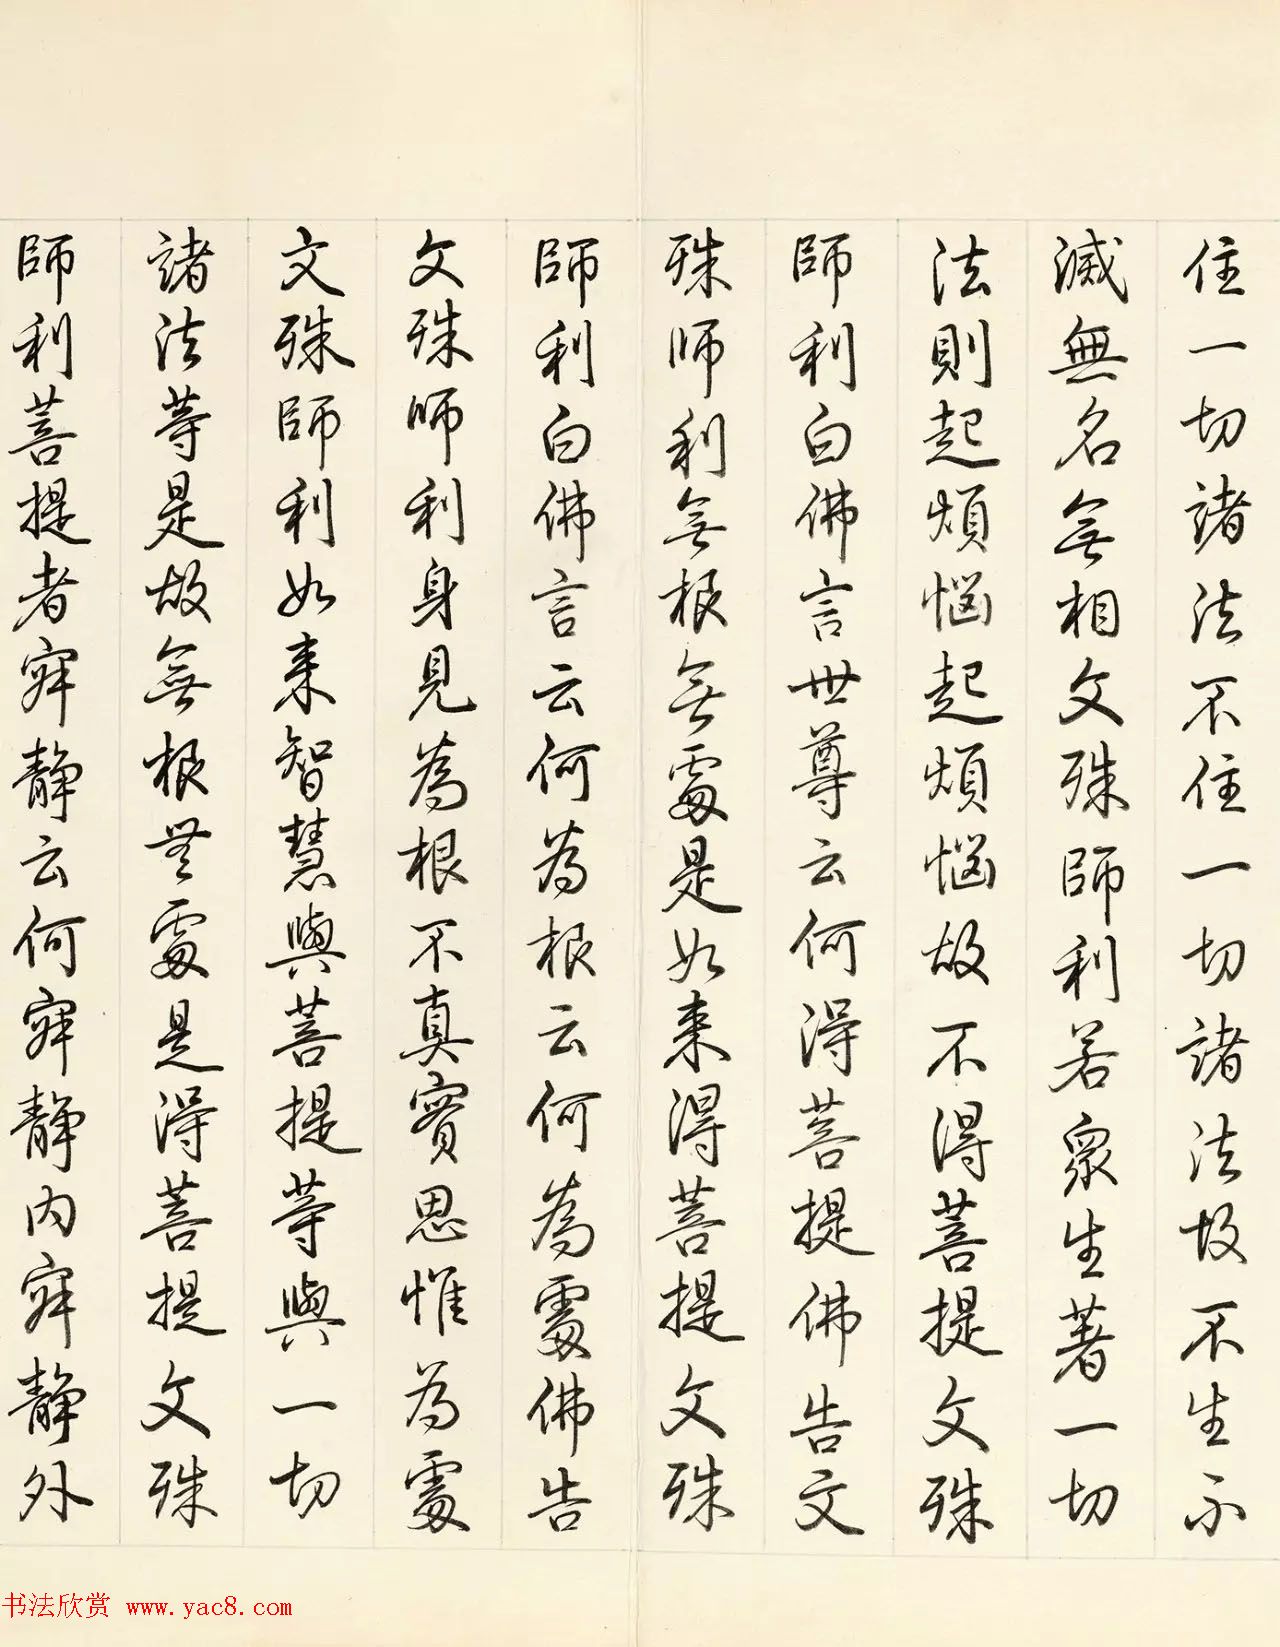 住一切諸法不住一切諸法故不生不
滅無名無相文殊師利若眾生著一切
法則起煩惱起煩惱故不得菩提文殊
師利白佛言世尊云何得菩提佛告文
殊師利無根無處是如来得菩提文殊
師利白佛言云何為根云何為處佛告
文殊師利身見為根不真實思惟為處
文殊師利如来智慧與菩提等與一切
諸法等是故無根無處是得菩提文殊
師利菩提者寂静云何寂静內寂静外
书法欣赏 www.yac8.com